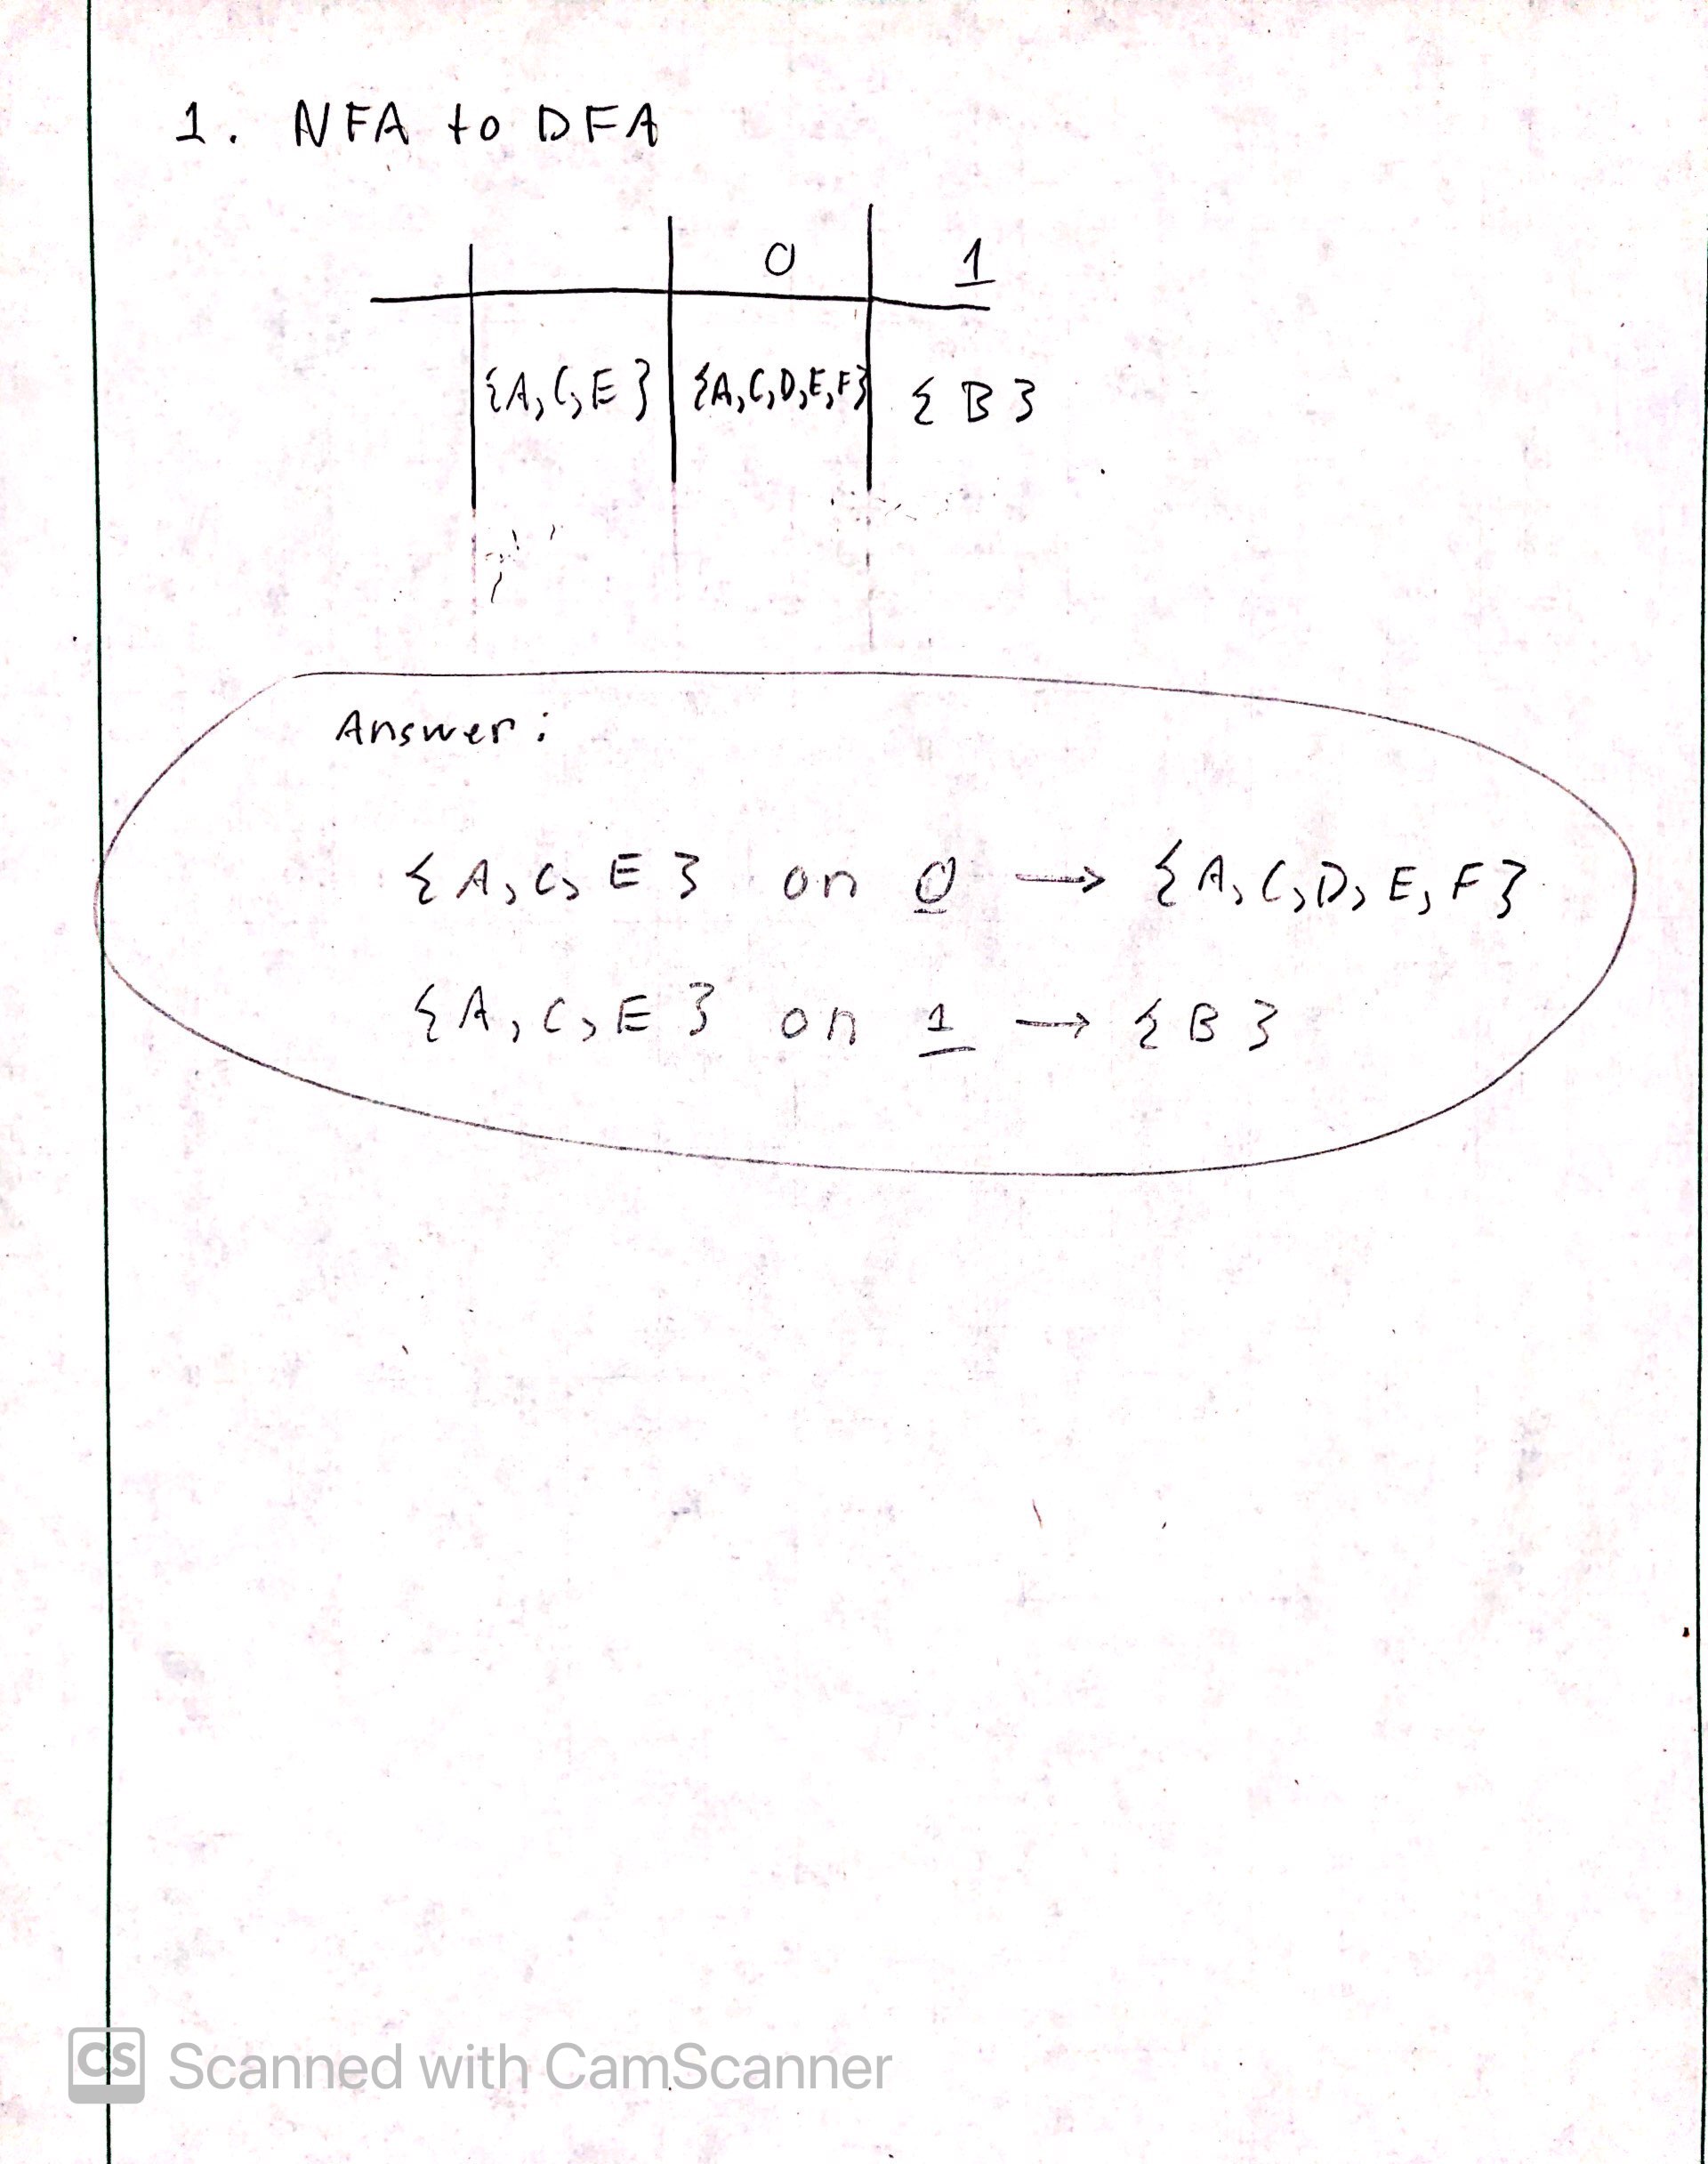 1. NFA to DFA
0 1
{A,C,E} {A,C,D,E,F} {B}
Answer:
{A,C,E} on 0 → {A,C,D,E,F}
{A,C,E} on 1 → {B}
CS Scanned with CamScanner